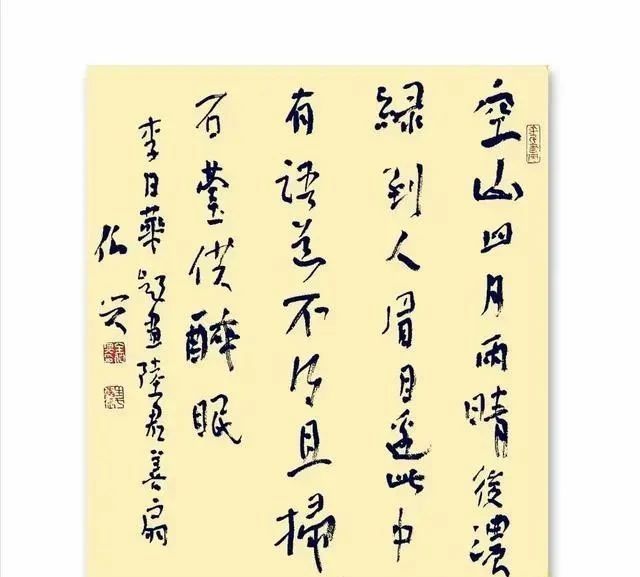 空山四月雨晴後濃
綠到人眉目邊此中
有語道不得且掃
石臺供醉眠
李日華題畫陸君善扇
伯